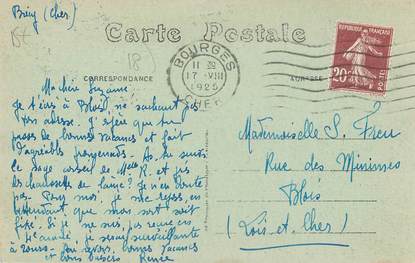 Brécy (Cher)
Carte Postale
CORRESPONDANCE
BOURGES
17 - VIII
1925
CHER
RÉPUBLIQUE FRANÇAISE
20c
POSTES
Ma chère Suzanne,
Je t'écris à Blois, ne sachant pas
ton adresse. J'espère que tu
passes de bonnes vacances et fait
d'agréables promenades. As-tu suivi
le sage conseil de Melle R. et pris
des chaussettes de laine? Je n'en doute
pas. Pour moi, je me repose, en
attendant que mon sort soit
fixé. Si je ne suis pas reçue ici
je serai surveillante
à Tours. Au revoir, bonnes vacances
et bons baisers Renée
Mademoiselle S. Freu
Rue des Minimes
Blois
(Loir et Cher)